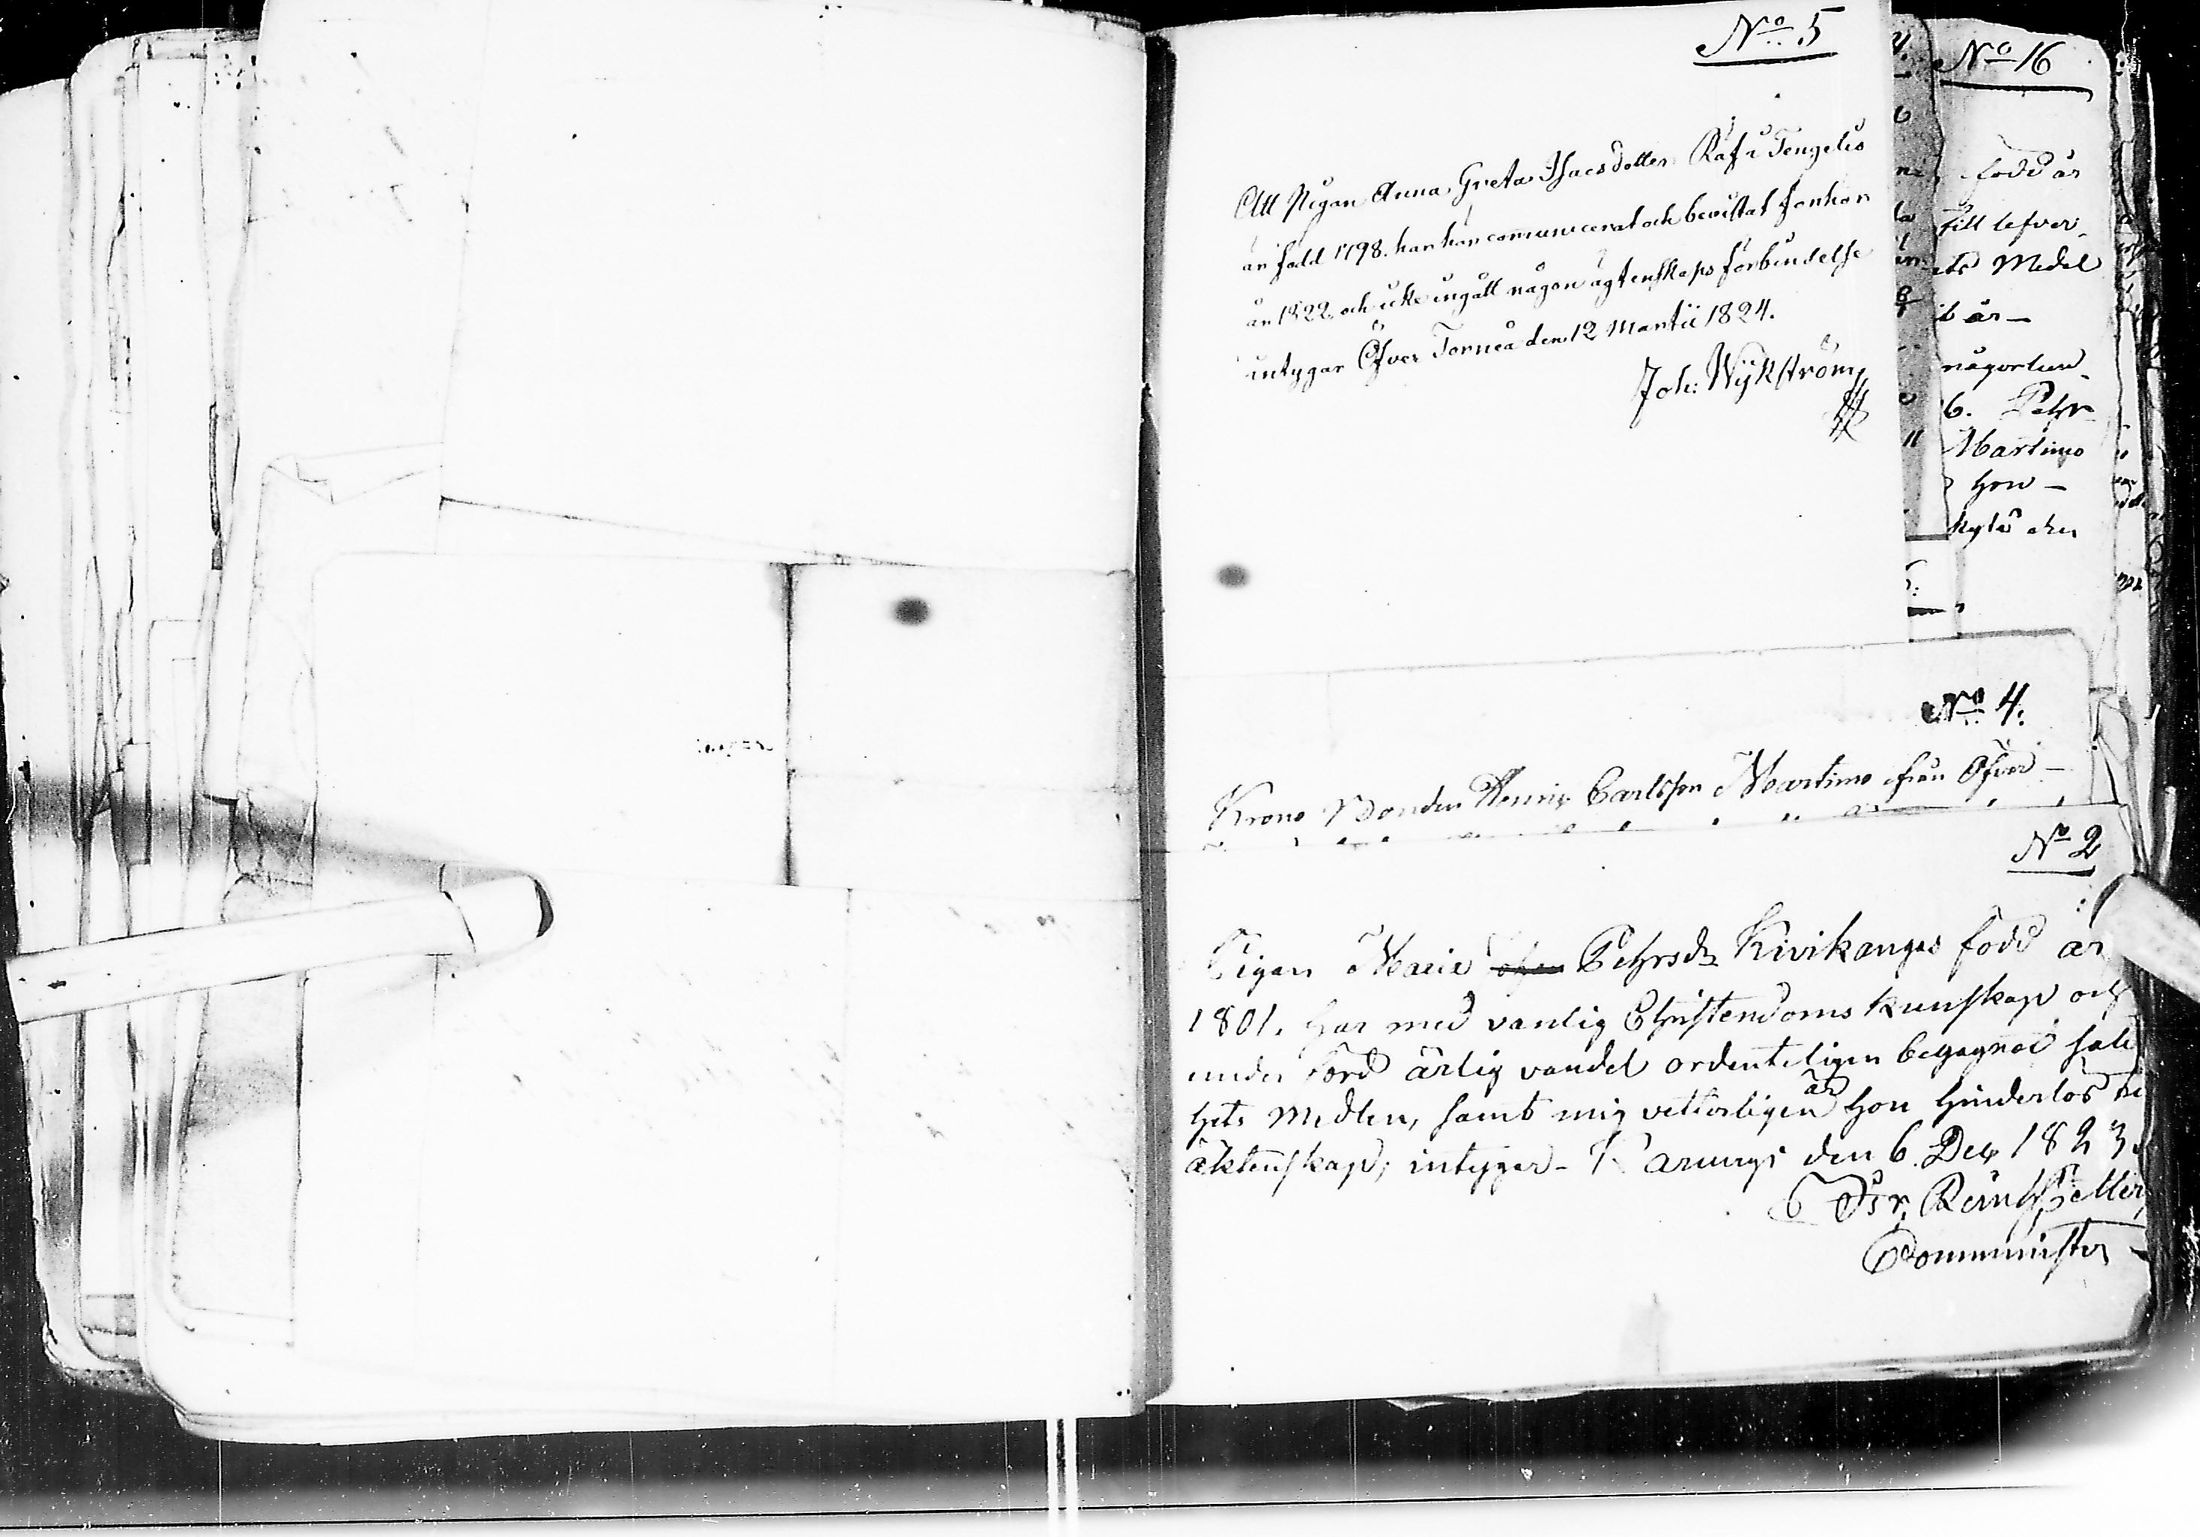 No 5
Att Pigan Anna Greta Isacsdotter Räf i Tengeliö
är född 1798. har hon communicerat och bevistat förhör
år 1822, och icke ingått någon ägtenskaps förbindelse
intygar Öfver Torneå den 12 Martii 1824.
Joh: Wijkström
No 16
född år
till lefver
Medel
är
någorlun
6. Pehr
Martimo
hon
No 4:
Krono Bonden Henric Carlsson Martimo från Öfver-
No 2
Pigan Maria Pehrsdr Kivikangas född år
1801. har med vanlig Christendoms kunskap och
under förd ärlig vandel ordenteligen begagnat sali
hets Medlen, samt mig vetterligen är hon hinderlös til
äktenskap; intygar- Karungi den 6. Dec 1823.
Comminister